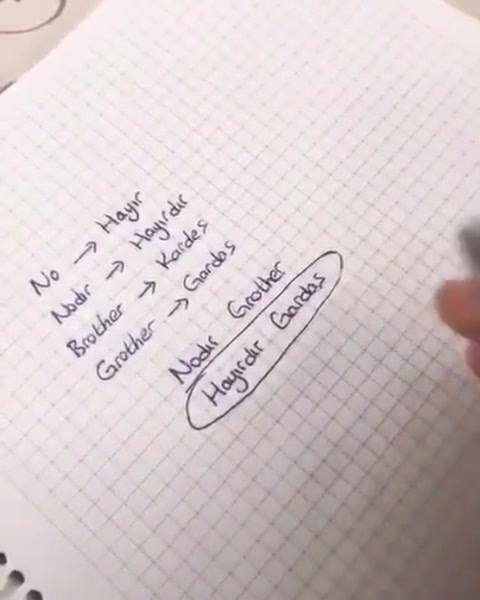 No → Hayır
Nodır → Hayırdır
Brother → Kardeş
Grother → Gardaş
Nodır Grother
Hayırdır Gardaş